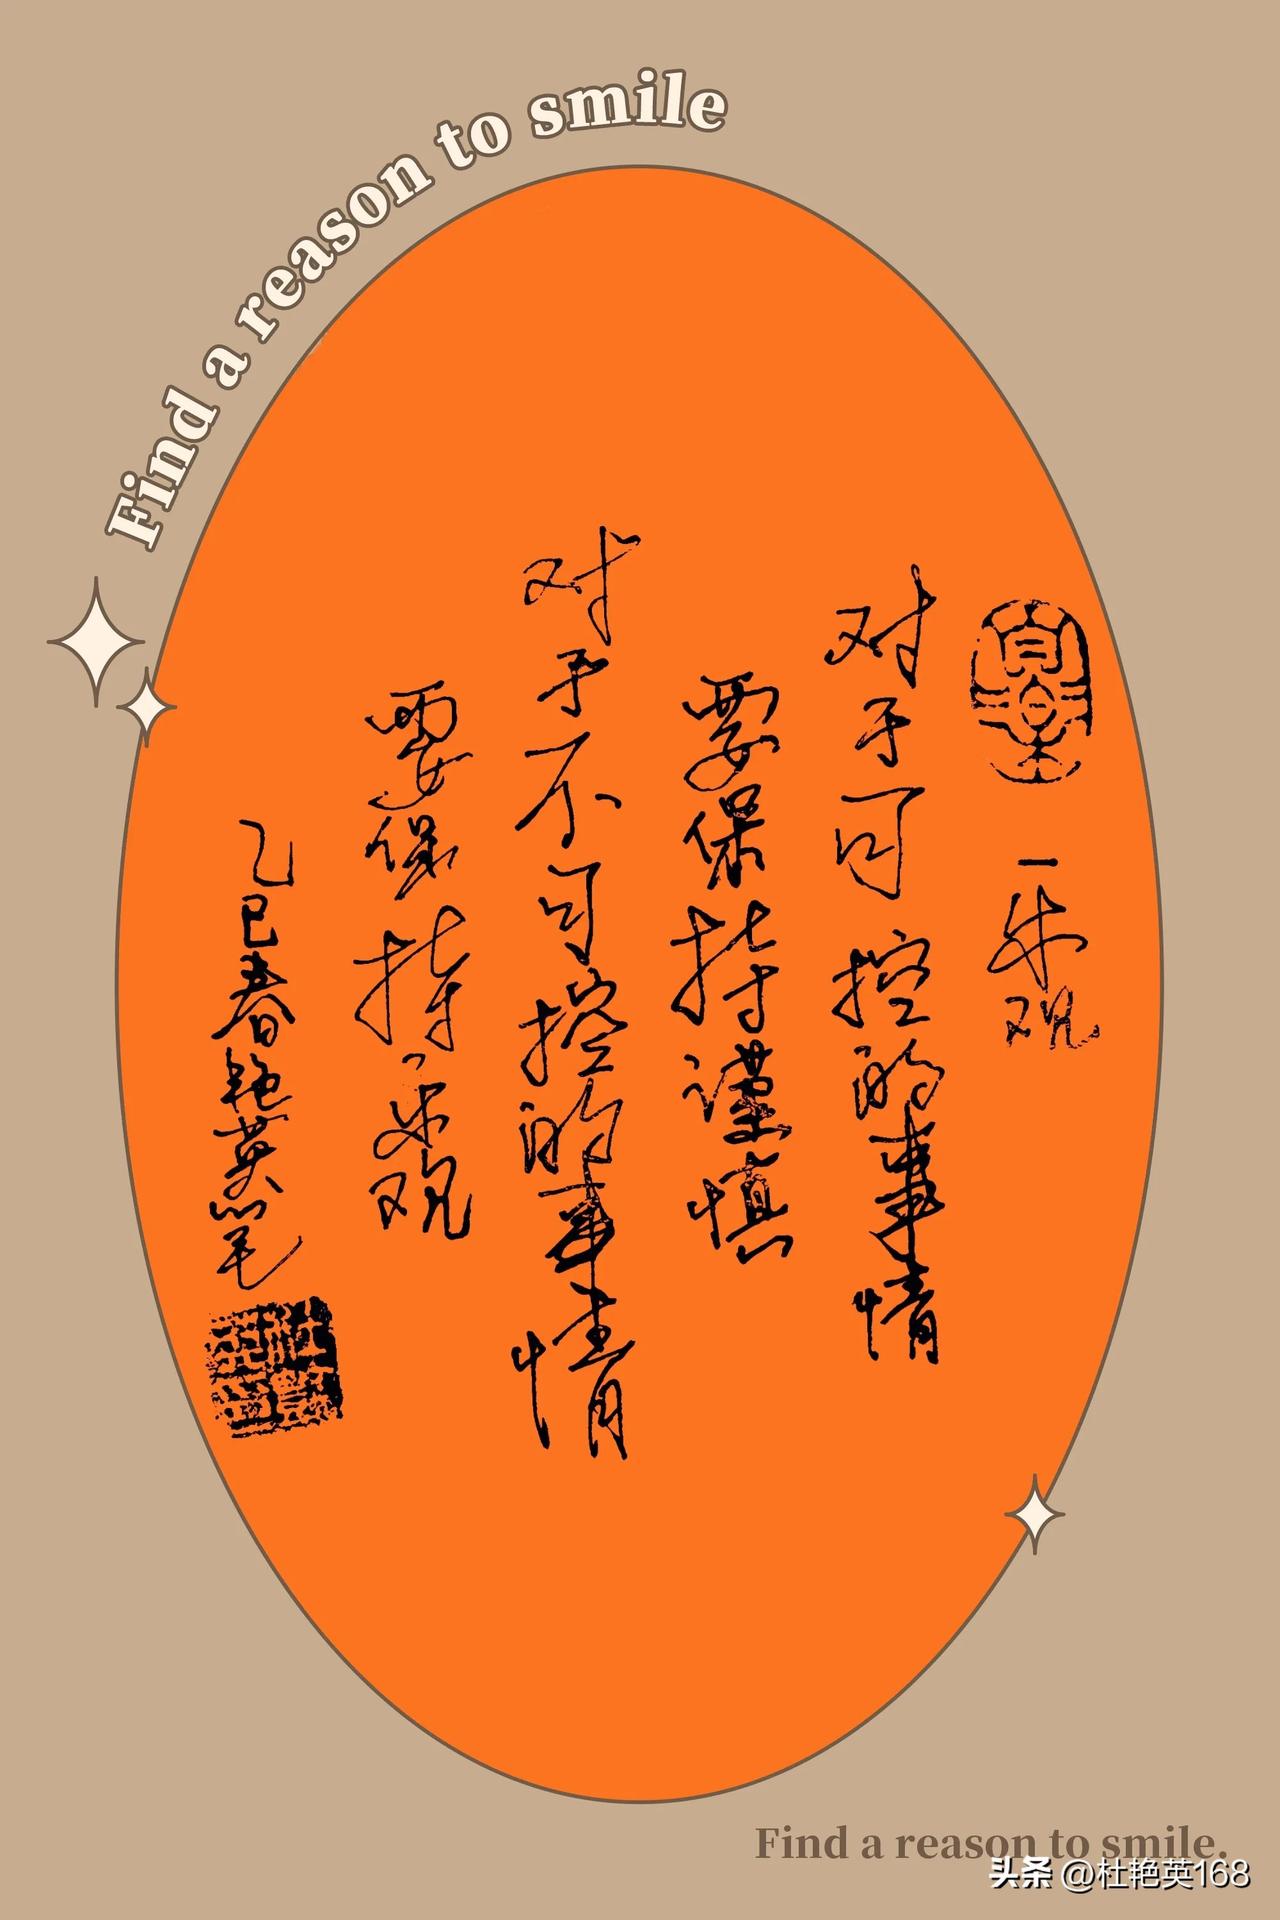 Find a reason to smile
一乐观
对于可控的事情
要保持谨慎
对于不可控的事情
要保持乐观
乙巳春艳英笔
Find a reason to smile.
头条 @杜艳英168